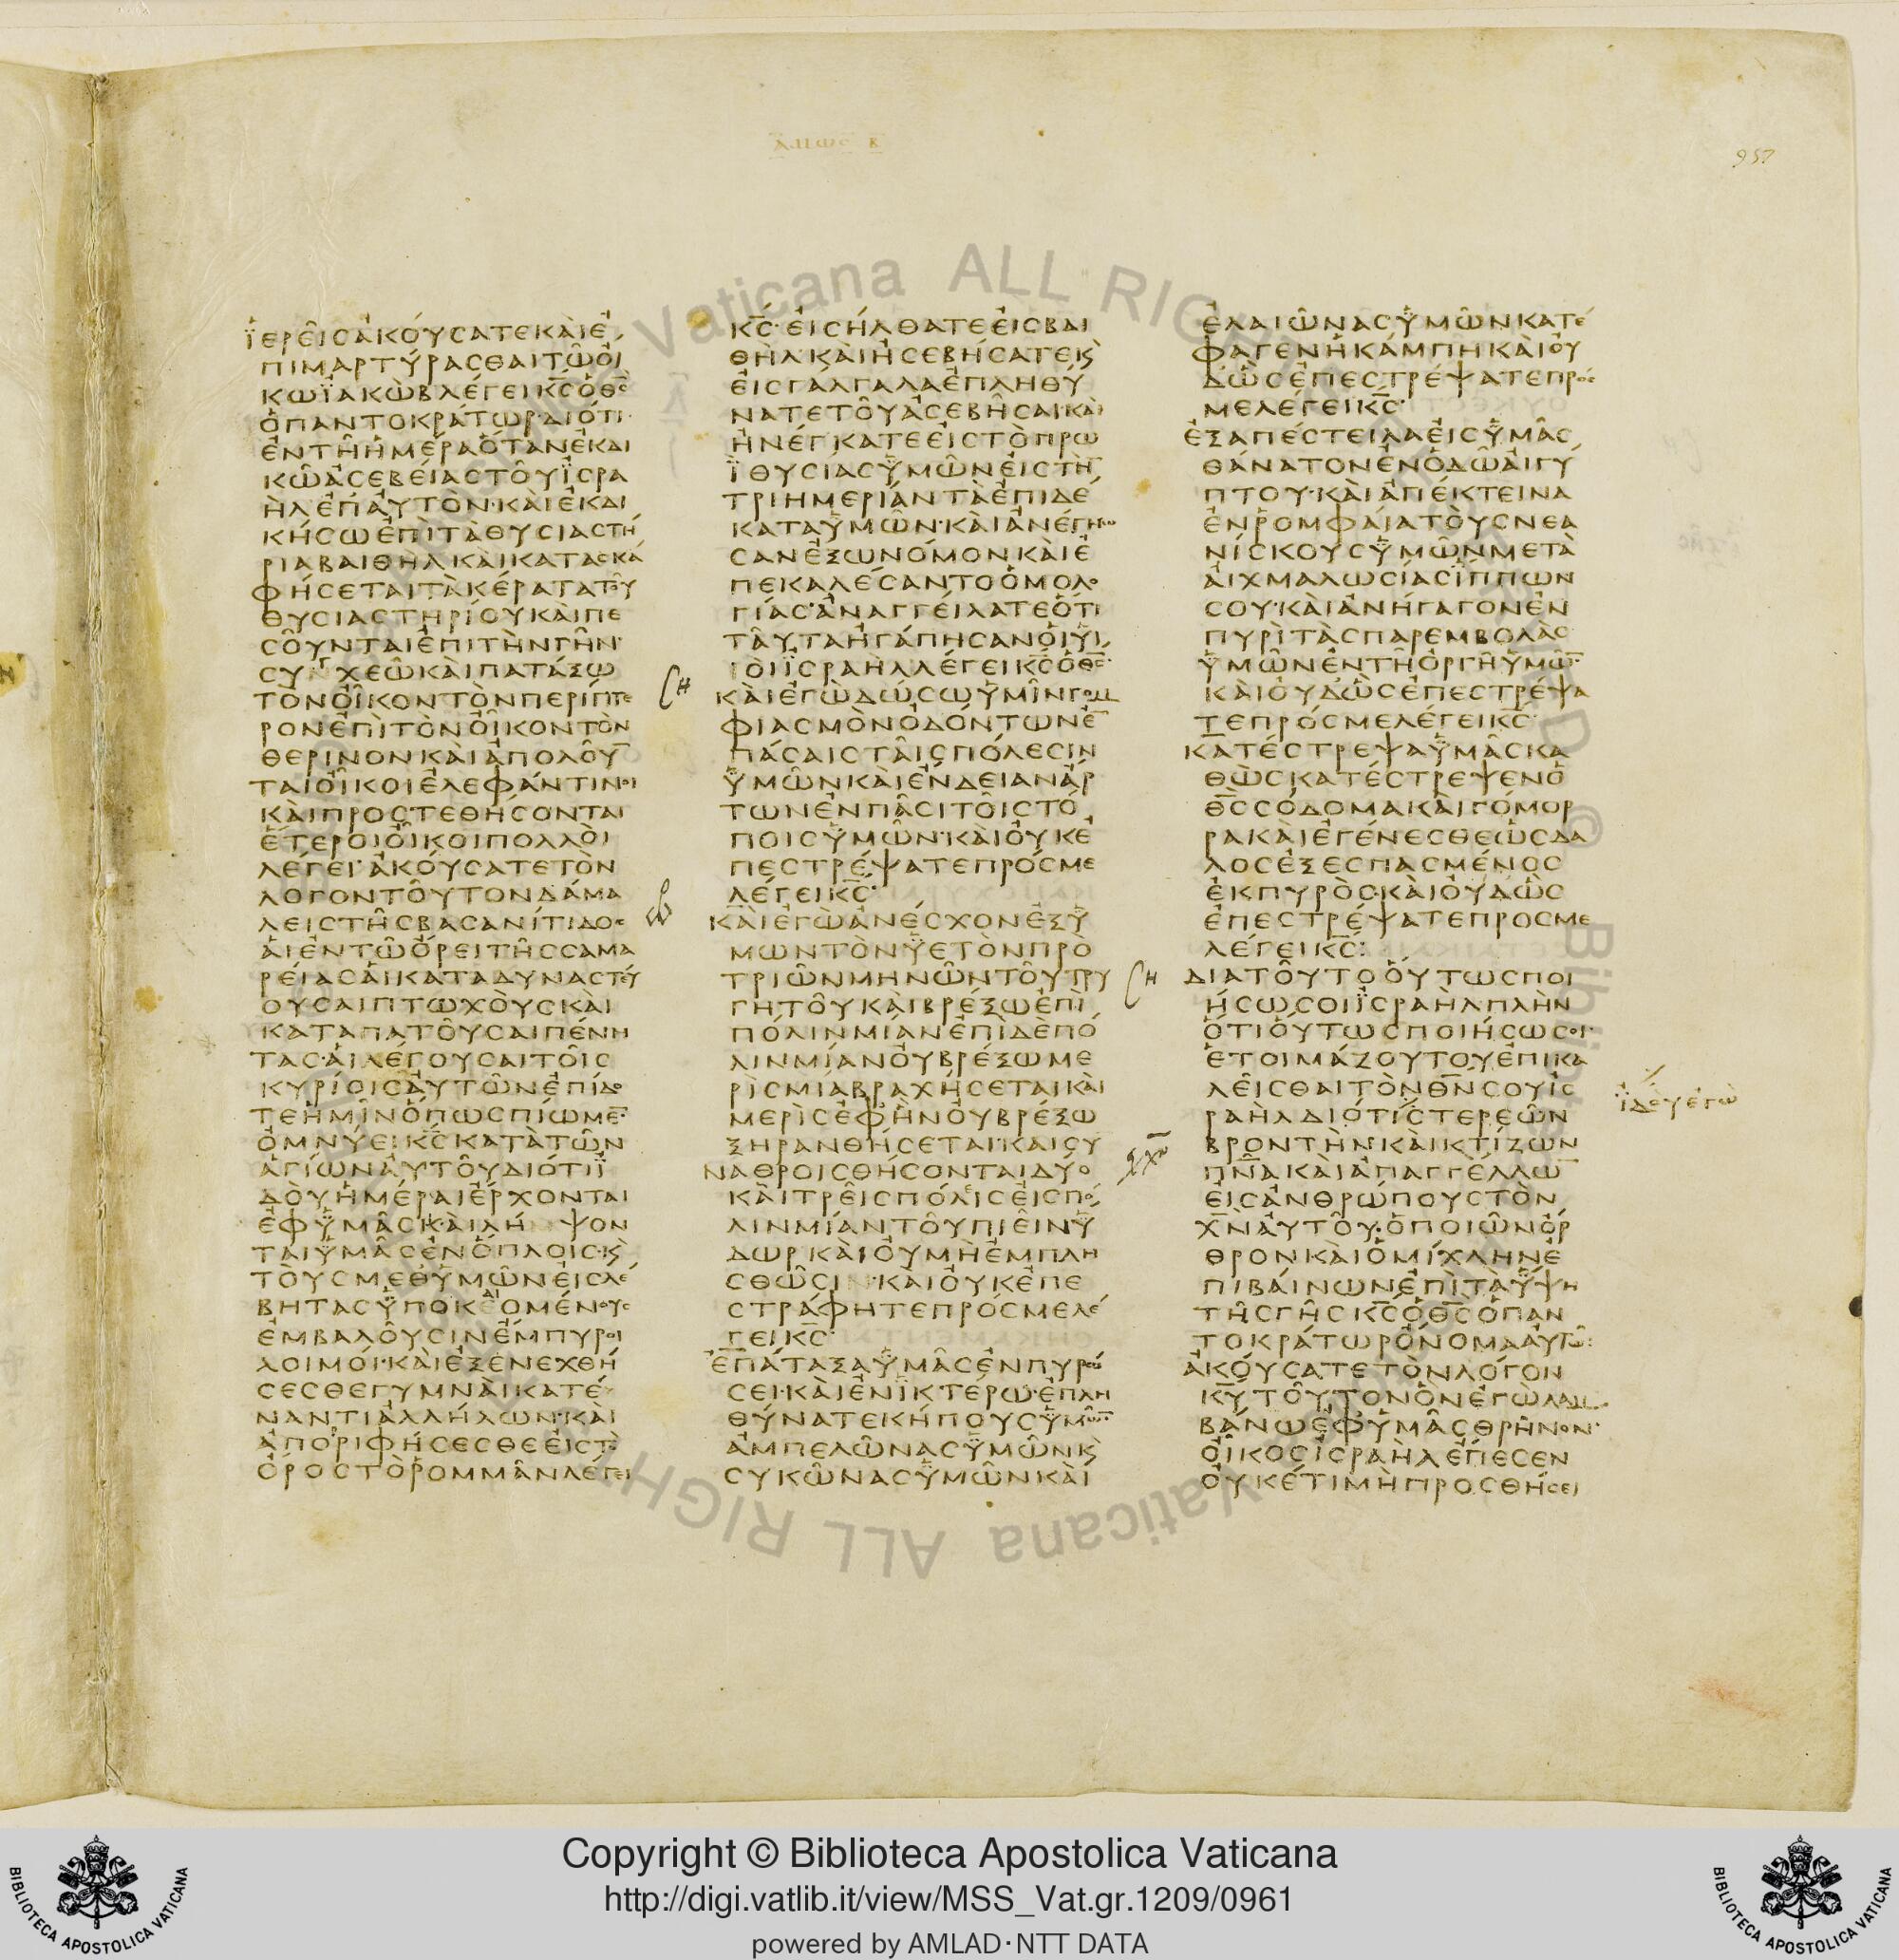 ἈΜΩΣ Β
957
ἹΕΡΕῖϹἈΚΟΎϹΑΤΕΚΑῚἘ
ΠΙΜΑΡΤΎΡΑϹΘΑΙΤΩ͂ΟἼ
ΚΩΪΑΚῺΒΛΈΓΕΙΚ̅Ϲ̅ὉΘ̅Ϲ̅
ὉΠΑΝΤΟΚΡΆΤΩΡ·ΔΙΌΤΙ
ἘΝΤΗ͂ἩΜΈΡΑὍΤΑΝἘΚΔΙ
ΚΩ͂ἈϹΕΒΕΊΑϹΤΟΥ͂ΪϹΡΑ
ῊΛἘΠΑΥΤῸΝ·ΚΑῚἘΚΔΙ
ΚΉϹΩἘΠῚΤᾺΘΥϹΙΑϹΤΉ
ΡΙΑΒΑΙΘῊΛΚΑῚΚΑΤΑϹΚΆ
ΦΉϹΕΤΑΙΤᾺΚΈΡΑΤΑΤΟΥ͂
ΘΥϹΙΑϹΤΗΡΊΟΥΚΑῚΠΕ
ϹΟΥ͂ΝΤΑΙἘΠΙΤῊΝΓΗ͂Ν·
ϹΥΓΧΕΩ͂ΚΑῚΠΑΤΆΞΩ
ΤῸΝΟἾΚΟΝΤῸΝΠΕΡΊΠΤΕ
ΡΟΝἘΠῚΤῸΝΟἾΚΟΝΤῸΝ
ΘΕΡΙΝΟΝΚΑῚἈΠΟΛΟΥ͂
ΤΑΙΟἾΚΟΙἘΛΕΦΆΝΤΙΝΟΙ
ΚΑῚΠΡΟϹΤΕΘΉϹΟΝΤΑΙ
ἝΤΕΡΟΙΟἾΚΟΙΠΟΛΛΟῚ
ΛΈΓΕΙ·ἈΚΟΎϹΑΤΕΤῸΝ
ΛΟΓΟΝΤΟΥ͂ΤΟΝΔΆΜΑ
ΛΕΙϹΤΗ͂ϹΒΑϹΑΝΊΤΙΔΟϹ
ΑἹἘΝΤΩ͂ὌΡΕΙΤΗ͂ϹϹΑΜΑ
ΡΕΊΑϹΑἹΚΑΤΑΔΥΝΑϹΤΕΎ
ΟΥϹΑΙΠΤΩΧΟῪϹΚΑῚ
ΚΑΤΑΠΑΤΟΥ͂ϹΑΙΠΈΝΗ
ΤΑϹ·ΑἹΛΈΓΟΥϹΑΙΤΟΙ͂Ϲ
ΚΥΡΊΟΙϹΑΥΤΩ͂ΝἘΠΊΔΟ
ΤΕἩΜΙ͂ΝὍΠΩϹΠΙΩΜΕ̅·
ὈΜΝΎΕΙΚ̅Ϲ̅ΚΑΤᾺΤΩ͂Ν
ἉΓΊΩΝΑΥΤΟΥ͂ΔΙΌΤΙΪ
ΔΟῪἩΜΈΡΑΙἜΡΧΟΝΤΑΙ
ἘΦΥΜΑ͂Ϲ·ΚΑῚΛΉΜΨΟΝ
ΤΑΙΥΜΑ͂ϹἘΝὍΠΛΟΙϹ·Κ̀
ΤΟῪϹΜΕΘΥΜΩ͂ΝΕἸϹΛΈ
ΒΗΤΑϹΥΠΟΚΑΙΟΜΈΝΟΥϹ
ἘΜΒΑΛΟΥ͂ϹΙΝἜΜΠΥΡΟΙ
ΛΟΙΜΟΊ·ΚΑῚἘΞΕΝΕΧΘΉ
ϹΕϹΘΕΓΥΜΝΑῚΚΑΤΈ
ΝΑΝΤΙἈΛΛΉΛΩΝ·ΚΑῚ
ἈΠΟΡΙΦΉϹΕϹΘΕΕἸϹΤῸ
ὌΡΟϹΤῸΡΟΜΜΑ͂ΝΛΈΓΕΙ
Κ̅Ϲ̅·ΕἸϹΉΛΘΑΤΕΕἸϹΒΑΙ
ΘῊΛΚΑῚἨϹΕΒΉϹΑΤΕΚ̀
ΕἸϹΓΆΛΓΑΛΑἘΠΛΗΘΎ
ΝΑΤΕΤΟΥ͂ἈϹΕΒΗ͂ϹΑΙ·ΚΑῚ
ἨΝΈΓΚΑΤΕΕἸϹΤῸΠΡΩ
ΪΘΥϹΊΑϹΥΜΩ͂ΝΕἸϹΤῊ̅
ΤΡΙΗΜΕΡΊΑΝΤᾺἘΠΙΔΈ
ΚΑΤΑΥΜΩ͂Ν·ΚΑῚἈΝΈΓΝΩ
ϹΑΝἜΞΩΝΌΜΟΝΚΑῚἘ
ΠΕΚΑΛΈϹΑΝΤΟὉΜΟΛΟ
ΓΊΑϹ·ἈΝΑΓΓΕΊΛΑΤΕὍΤΙ
ΤΑΥ͂ΤΑἨΓΆΠΗϹΑΝΟἹΥΙ
ΟῚΪϹΡΑῊΛΛΈΓΕΙΚ̅Ϲ̅ὉΘ̅Ϲ̅·
ΚΑῚἘΓῺΔΏϹΩΥΜΙ͂ΝΓΟΜ
ΦΙΑϹΜῸΝὈΔΌΝΤΩΝἘ̅
ΠΆϹΑΙϹΤΑΙ͂ϹΠΌΛΕϹΙΝ
ΥΜΩ͂ΝΚΑῚἜΝΔΕΙΑΝἌΡ
ΤΩΝἘΝΠΑ͂ϹΙΤΟΙ͂ϹΤΌ
ΠΟΙϹΥΜΩ͂Ν·ΚΑῚΟΥΚΕ
ΠΕϹΤΡΈΨΑΤΕΠΡΌϹΜΕ
ΛΈΓΕΙΚ̅Ϲ̅·
ΚΑῚἘΓῺἈΝΈϹΧΟΝἘΞΥ
ΜΩΝΤῸΝΥΕΤῸΝΠΡΟ
ΤΡΙΩ͂ΝΜΗΝΩ͂ΝΤΟΥ͂ΤΡΥ
ΓΗΤΟΥ͂ΚΑῚΒΡΈΞΩἘΠῚ
ΠΌΛΙΝΜΊΑΝἘΠῚΔῈΠΌ
ΛΙΝΜΊΑΝΟΥΒΡΈΞΩΜΕ
ΡῚϹΜΙΑΒΡΑΧΉϹΕΤΑΙΚΑῚ
ΜΕΡῚϹἘΦΗΝΟΥΒΡΈΞΩ
ΞΗΡΑΝΘΉϹΕΤΑΙ·ΚΑΙϹΥ
ΝΑΘΡΟΙϹΘΉϹΟΝΤΑΙΔΎΟ
ΚΑῚΤΡΕΙ͂ϹΠΌΛΙϹΕἸϹΠΌ
ΛΙΝΜΊΑΝΤΟΥ͂ΠΙΕΙ͂ΝΥ
ΔΩΡΚΑῚΟΥΜῊἘΜΠΛΗ
ϹΘΩ͂ϹΙΝ·ΚΑῚΟΥΚΕΠΕ
ϹΤΡΆΦΗΤΕΠΡΌϹΜΕΛΈ
ΓΕΙΚ̅Ϲ̅·
ἘΠΆΤΑΞΑΥΜΑ͂ϹἘΝΠΥΡΏ
ϹΕΙ·ΚΑῚἘΝΪΚΤΈΡΩ·ἘΠΛΗ
ΘΎΝΑΤΕΚΉΠΟΥϹΥΜΩ͂̅
ἈΜΠΕΛΩ͂ΝΑϹΥΜΩ͂ΝΚ̀
ϹΥΚΩ͂ΝΑϹΥΜΩ͂ΝΚΑῚ
ἘΛΑΙΩ͂ΝΑϹΥΜΩ͂ΝΚΑΤΈ
ΦΑΓΕΝἩΚΆΜΠΗΚΑῚΟΥ
ΔΩϹἘΠΕϹΤΡΈΨΑΤΕΠΡΌϹ
ΜΕΛΈΓΕΙΚ̅Ϲ̅·
ἘΞΑΠΈϹΤΕΙΛΑΕἸϹΥΜΑ͂Ϲ
ΘΆΝΑΤΟΝἘΝὉΔΩ͂ΑἸΓΎ
ΠΤΟΥ·ΚΑῚἈΠΈΚΤΕΙΝΑ
ἘΝΡΟΜΦΑΊΑΤΟῪϹΝΕΑ
ΝΊϹΚΟΥϹΥΜΩ͂ΝΜΕΤᾺ
ΑἸΧΜΑΛΩϹΊΑϹἽΠΠΩΝ
ϹΟΥ·ΚΑῚἈΝΉΓΑΓΟΝἘΝ
ΠΥΡῚΤᾺϹΠΑΡΕΜΒΟΛᾺϹ
ΥΜΩ͂ΝἘΝΤΗ͂ὈΡΓΗ͂ΥΜΩ͂̅·
ΚΑῚΟΥΔΩϹἘΠΕϹΤΡΈΨΑ
ΤΕΠΡΌϹΜΕΛΈΓΕΙΚ̅Ϲ̅·
ΚΑΤΈϹΤΡΕΨΑΥΜΑ͂ϹΚΑ
ΘῺϹΚΑΤΈϹΤΡΕΨΕΝὉ
Θ̅Ϲ̅ϹΌΔΟΜΑΚΑῚΓΌΜΟΡ
ΡΑΚΑῚἘΓΈΝΕϹΘΕὩϹΔΑ
ΛΟϹἘΞΕϹΠΑϹΜΈΝΟϹ
ἘΚΠΥΡῸϹ·ΚΑῚΟΥΔΩϹ
ἘΠΕϹΤΡΈΨΑΤΕΠΡΟϹΜΕ
ΛΈΓΕΙΚ̅Ϲ̅:
ΔΙΑΤΟΥ͂ΤΟΟΥΤΩϹΠΟΙ
ΉϹΩϹΟΙΪϹΡΑῊΛΠΛῊΝ
ὍΤΙΟΥΤΩϹΠΟΙΉϹΩϹΟΙ·
ἘΤΟΙΜΆΖΟΥΤΟΥΕΠΙΚΑ
ΛΕΙ͂ϹΘΑΙΤῸΝΘ̅Ν̅ϹΟΥΙϹ
ΡΑῊΛΔΙΌΤΙϹΤΕΡΕΩ͂Ν
ἰδοὺ ἐγὼ
ΒΡΟΝΤῊΝ·ΚΑῚΚΤΊΖΩΝ
Π̅Ν̅Α̅ΚΑῚἈΠΑΓΓΈΛΛΩ̅
ΕἸϹἈΝΘΡΏΠΟΥϹΤῸΝ
Χ̅Ν̅ΑΥΤΟΥ͂·ὉΠΟΙΩ͂ΝὌΡ
ΘΡΟΝΚΑῚὉΜΊΧΛΗΝἘ
ΠΙΒΑΊΝΩΝἘΠῚΤᾺΥΨΗ
ΤΗ͂ϹΓΗ͂ϹΚ̅Ϲ̅ὉΘ̅Ϲ̅ὉΠΑΝ
ΤΟΚΡΆΤΩΡὌΝΟΜΑΑΥΤΩ͂:
ἈΚΟΎϹΑΤΕΤῸΝΛΌΓΟΝ
Κ̅Υ̅ΤΟΥ͂ΤΟΝὋΝἘΓΩΛΑΜ
ΒΆΝΩἘΦΥΜΑ͂ϹΘΡΗ͂ΝΟΝ·
ΟἾΚΟϹΙϹΡΑῊΛἜΠΕϹΕΝ
ΟΥΚΈΤΙΜῊΠΡΟϹΘΉϹΕΙ
Copyright © Biblioteca Apostolica Vaticana
http://digi.vatlib.it/view/MSS_Vat.gr.1209/0961
powered by AMLAD·NTT DATA
BIBLIOTECA APOSTOLICA VATICANA
BIBLIOTECA APOSTOLICA VATICANA